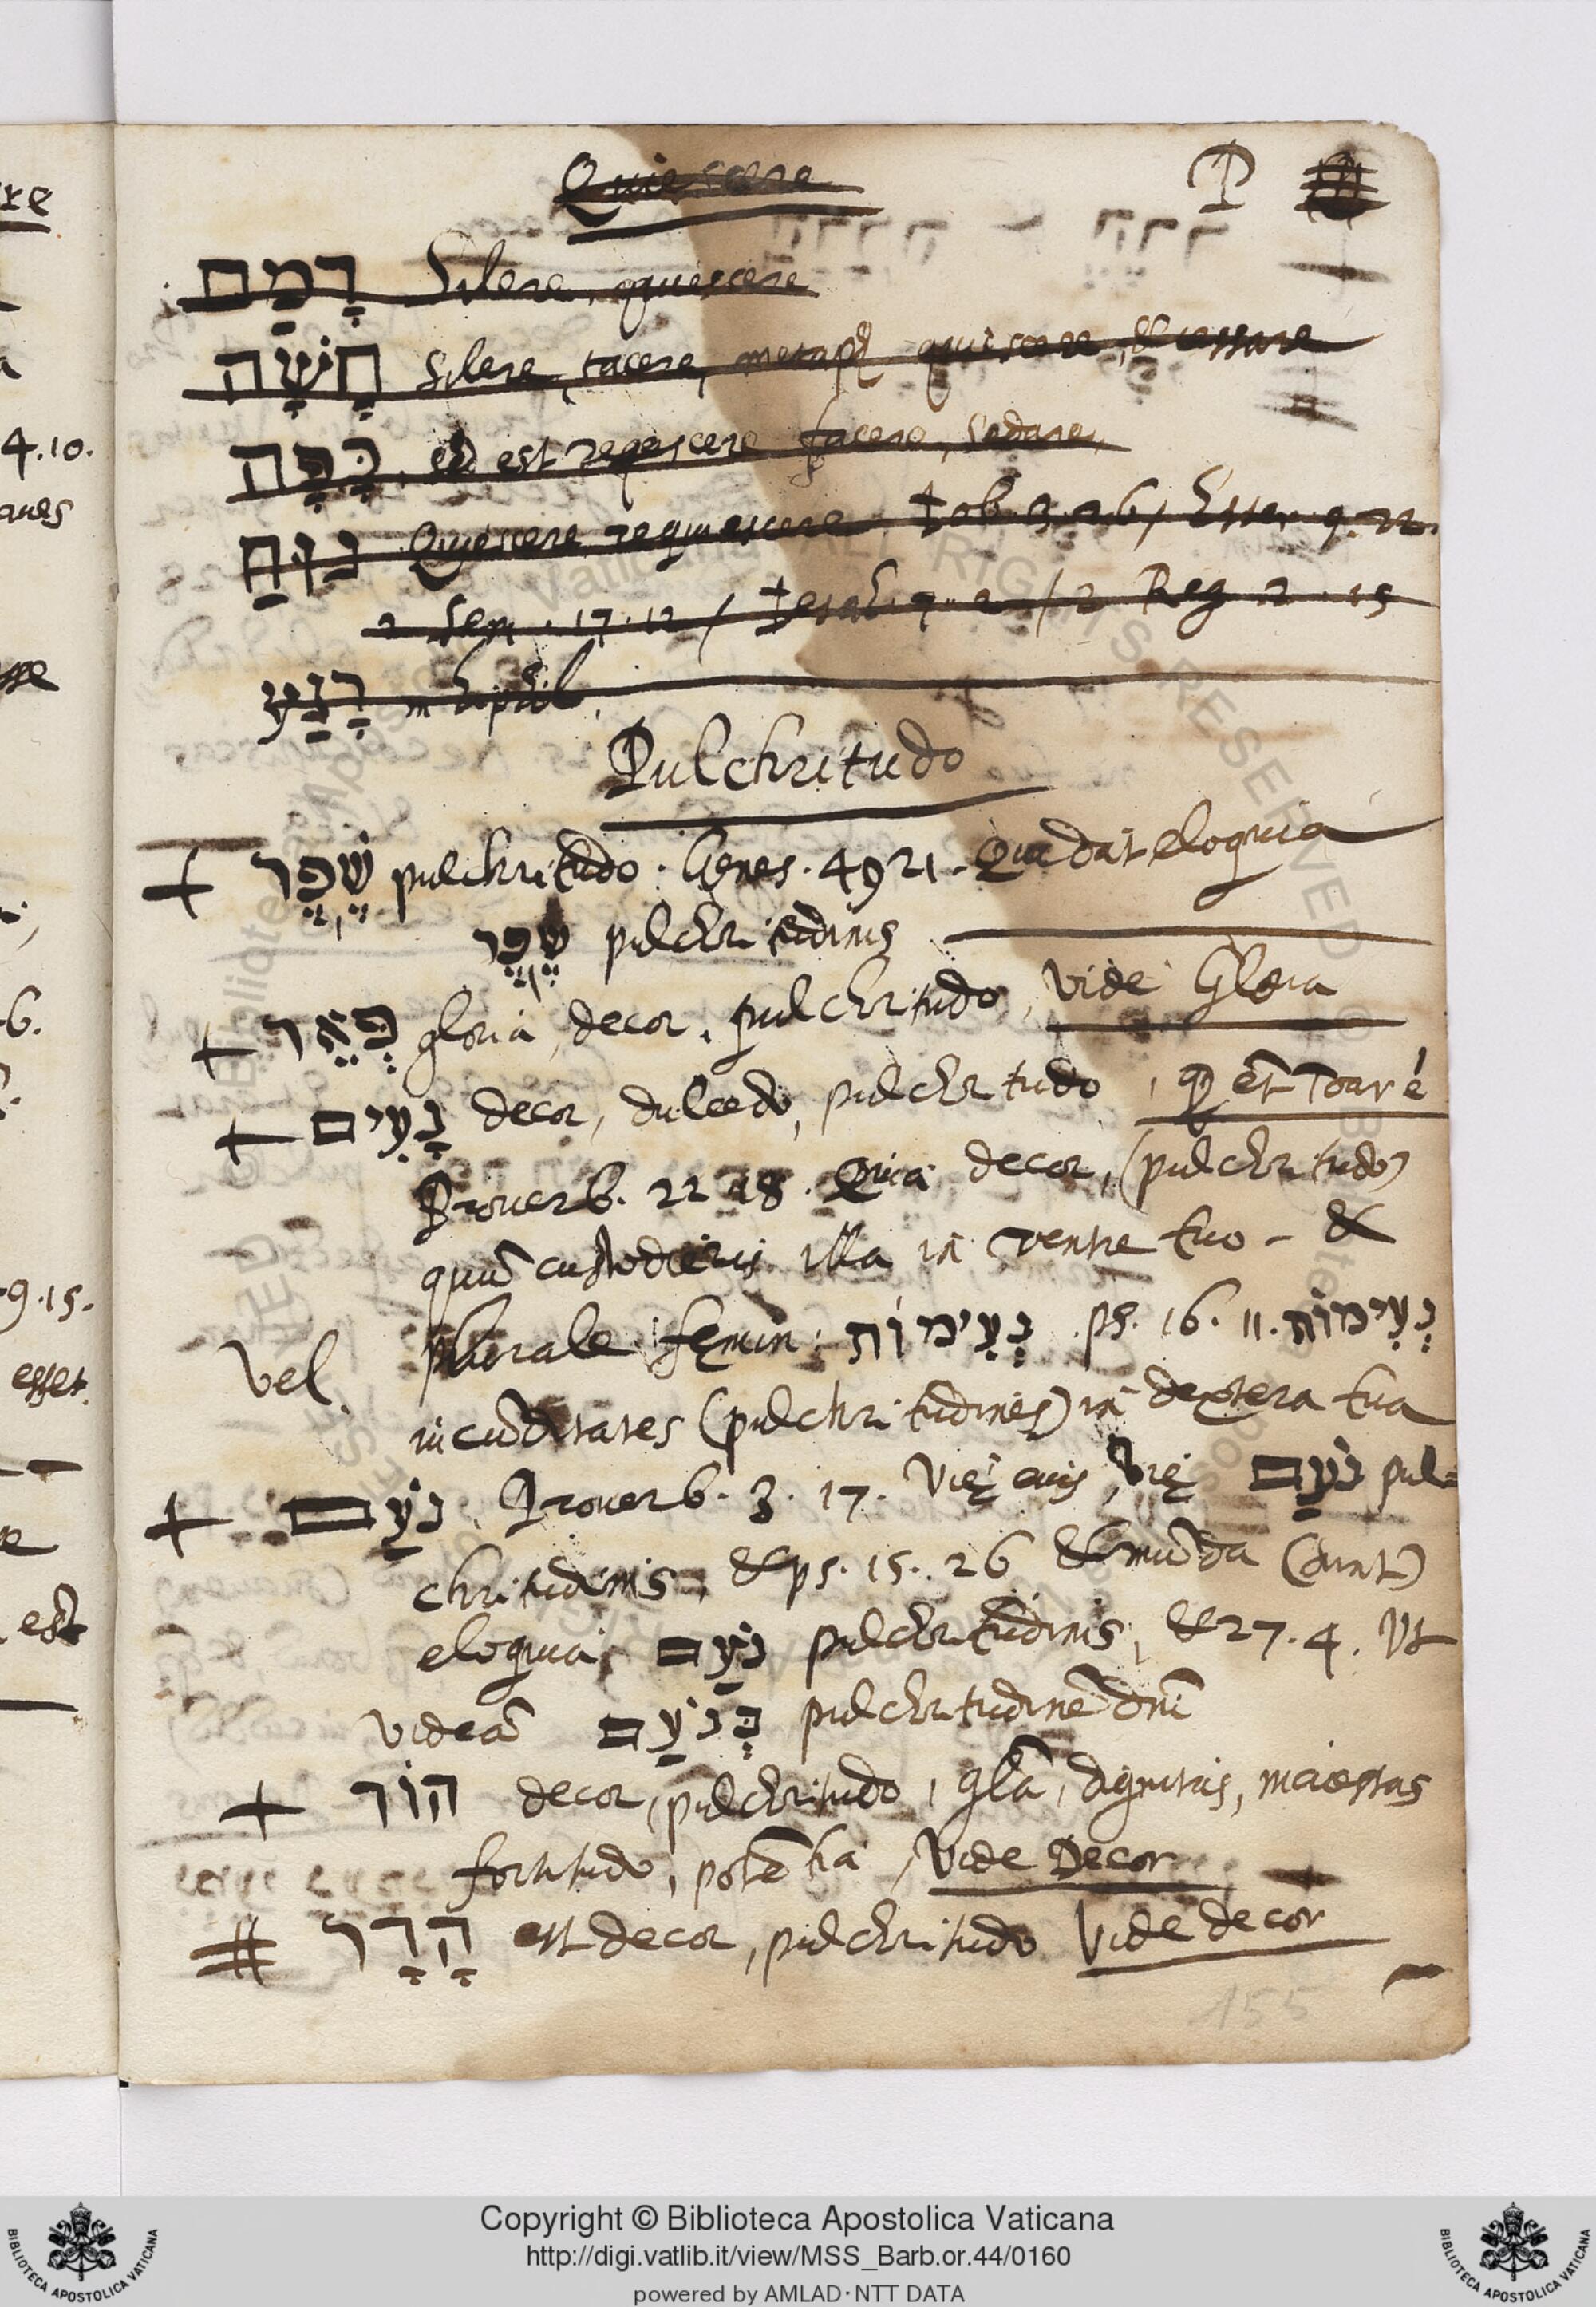 Quiescere
P
דָמַם Silere, quiescere
חָשָׁה Silere, tacere, metaph quiescere, & cessare
כָּפָה. sed est reqescere facere, sedare,
נוּחַ Quiescere requiescere. Iob. 3. 26 / Ester 9. 22.
2 Sem. 17. 12 / Iesah. 7. 2 / 2 Reg 2. 15
רָגַע in hiphil,
Pulchritudo
+ שֶׁפֶר pulchritudo. Genes. 49 21. Qui dat eloquia
שֶׁפֶר pulchritudinis
+ פְּאֵר gloria, decor, pulchritudo, vide Gloria
+ נָעִים decor, dulcedo, pulchritudo, et Toar é
Prouerb. 22 18. Quia decor, (pulchritudo)
quum custodieris illa in ventre tuo - &
Vel. plurale femin: נְעִימוֹת. ps. 16. 11. נְעִימוֹת
iucuditates (pulchritudines) in dextera tua
+ נֹעַם. Prouerb. 3. 17. Vię eius, vię נֹעַם pul=
chritudinis, & ps. 15. 26 & muda (sunt)
eloquia, נֹעַם pulchritudinis, & 27. 4. Vt
videā בְּנֹעַם pulchritudinē dni
+ הוֹד decor, pulchritudo, glā, dignitas, maiestas
fortitudo, potētia, Vide Decor
# הָדָר est decor, pulchritudo Vide decor
155
re
4.10.
aues
sse
6.
9.15.
esset.
est
Copyright © Biblioteca Apostolica Vaticana
http://digi.vatlib.it/view/MSS_Barb.or.44/0160
powered by AMLAD·NTT DATA
BIBLIOTECA APOSTOLICA VATICANA
BIBLIOTECA APOSTOLICA VATICANA